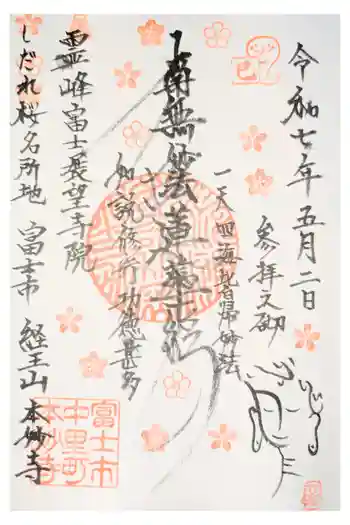 令和七年五月二日
参拝之砌
一天四海皆帰妙法
南無妙法蓮華経
如説修行功徳甚多
霊峰富士展望寺院
しだれ桜名所地 富士市 経王山 本妙寺
巳
富士市
中里町
本妙寺